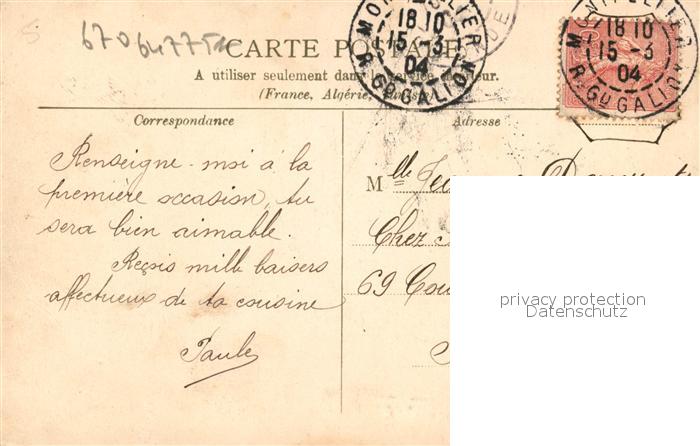 670647751
CARTE POSTALE
A utiliser seulement dans le service intérieur.
(France, Algérie, Tunisie)
MONTPELLIER
18 10
15 -3
04
R. Gd GALION
MONTPELLIER
18 10
15 -3
04
R. Gd GALION
Correspondance
Adresse
Renseigne-moi à la
première occasion, tu
sera bien aimable.
Reçois mille baisers
affectueux de ta cousine
Paule
Mlle
Chez
69
privacy protection
Datenschutz